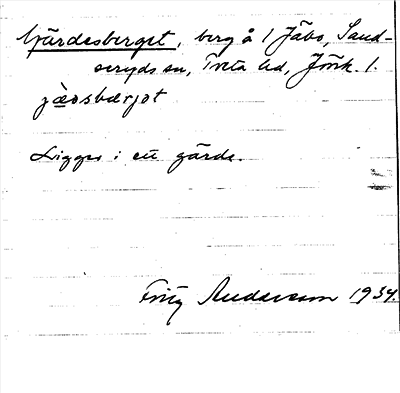 Gärdesberget, berg å 1 Jäbo, Sand-
seryds sn, Tveta hd, Jönk. l.
jæ̀ɷsbærjət
Ligger i ett gärde.
Fritz Andersson 1934.